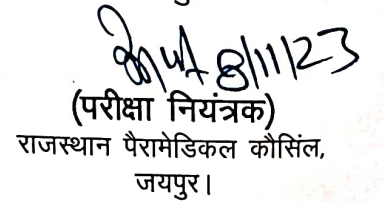 8/11/23
(परीक्षा नियंत्रक)
राजस्थान पैरामेडिकल कौसिंल,
जयपुर।